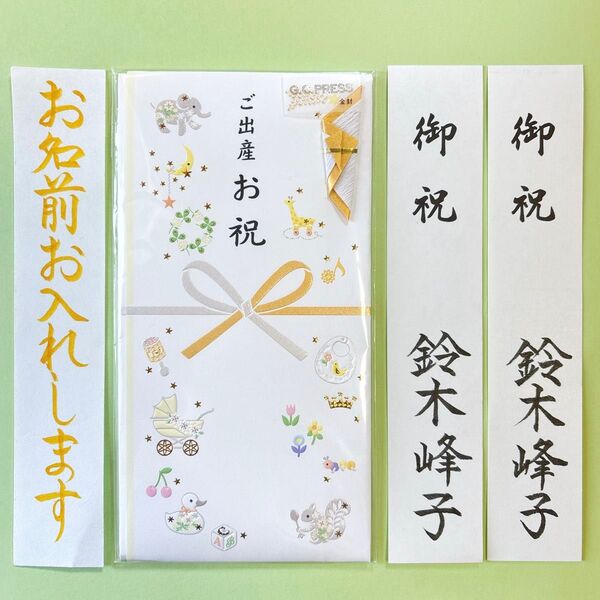 お名前お入れします
G.C.PRESS
金封
ご出産
お祝
御祝
鈴木峰子
御祝
鈴木峰子